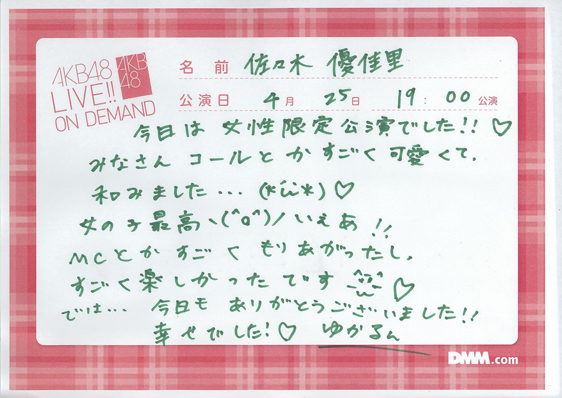 AKB48
LIVE!!
ON DEMAND
AKB
48
名前 佐々木 優佳里
公演日 4月 25日 19:00 公演
今日は 女性限定公演でした!! ♡
みなさん コールとかすごく可愛くて、
和みました... (*´ω`*)♡
女の子最高ヽ(^o^)ノいぇあ!!
MCとかすごくもりあがったし、
すごく楽しかったです ♡
では... 今日もありがとうございました!!
幸せでした!♡ ゆかるん
DMM.com